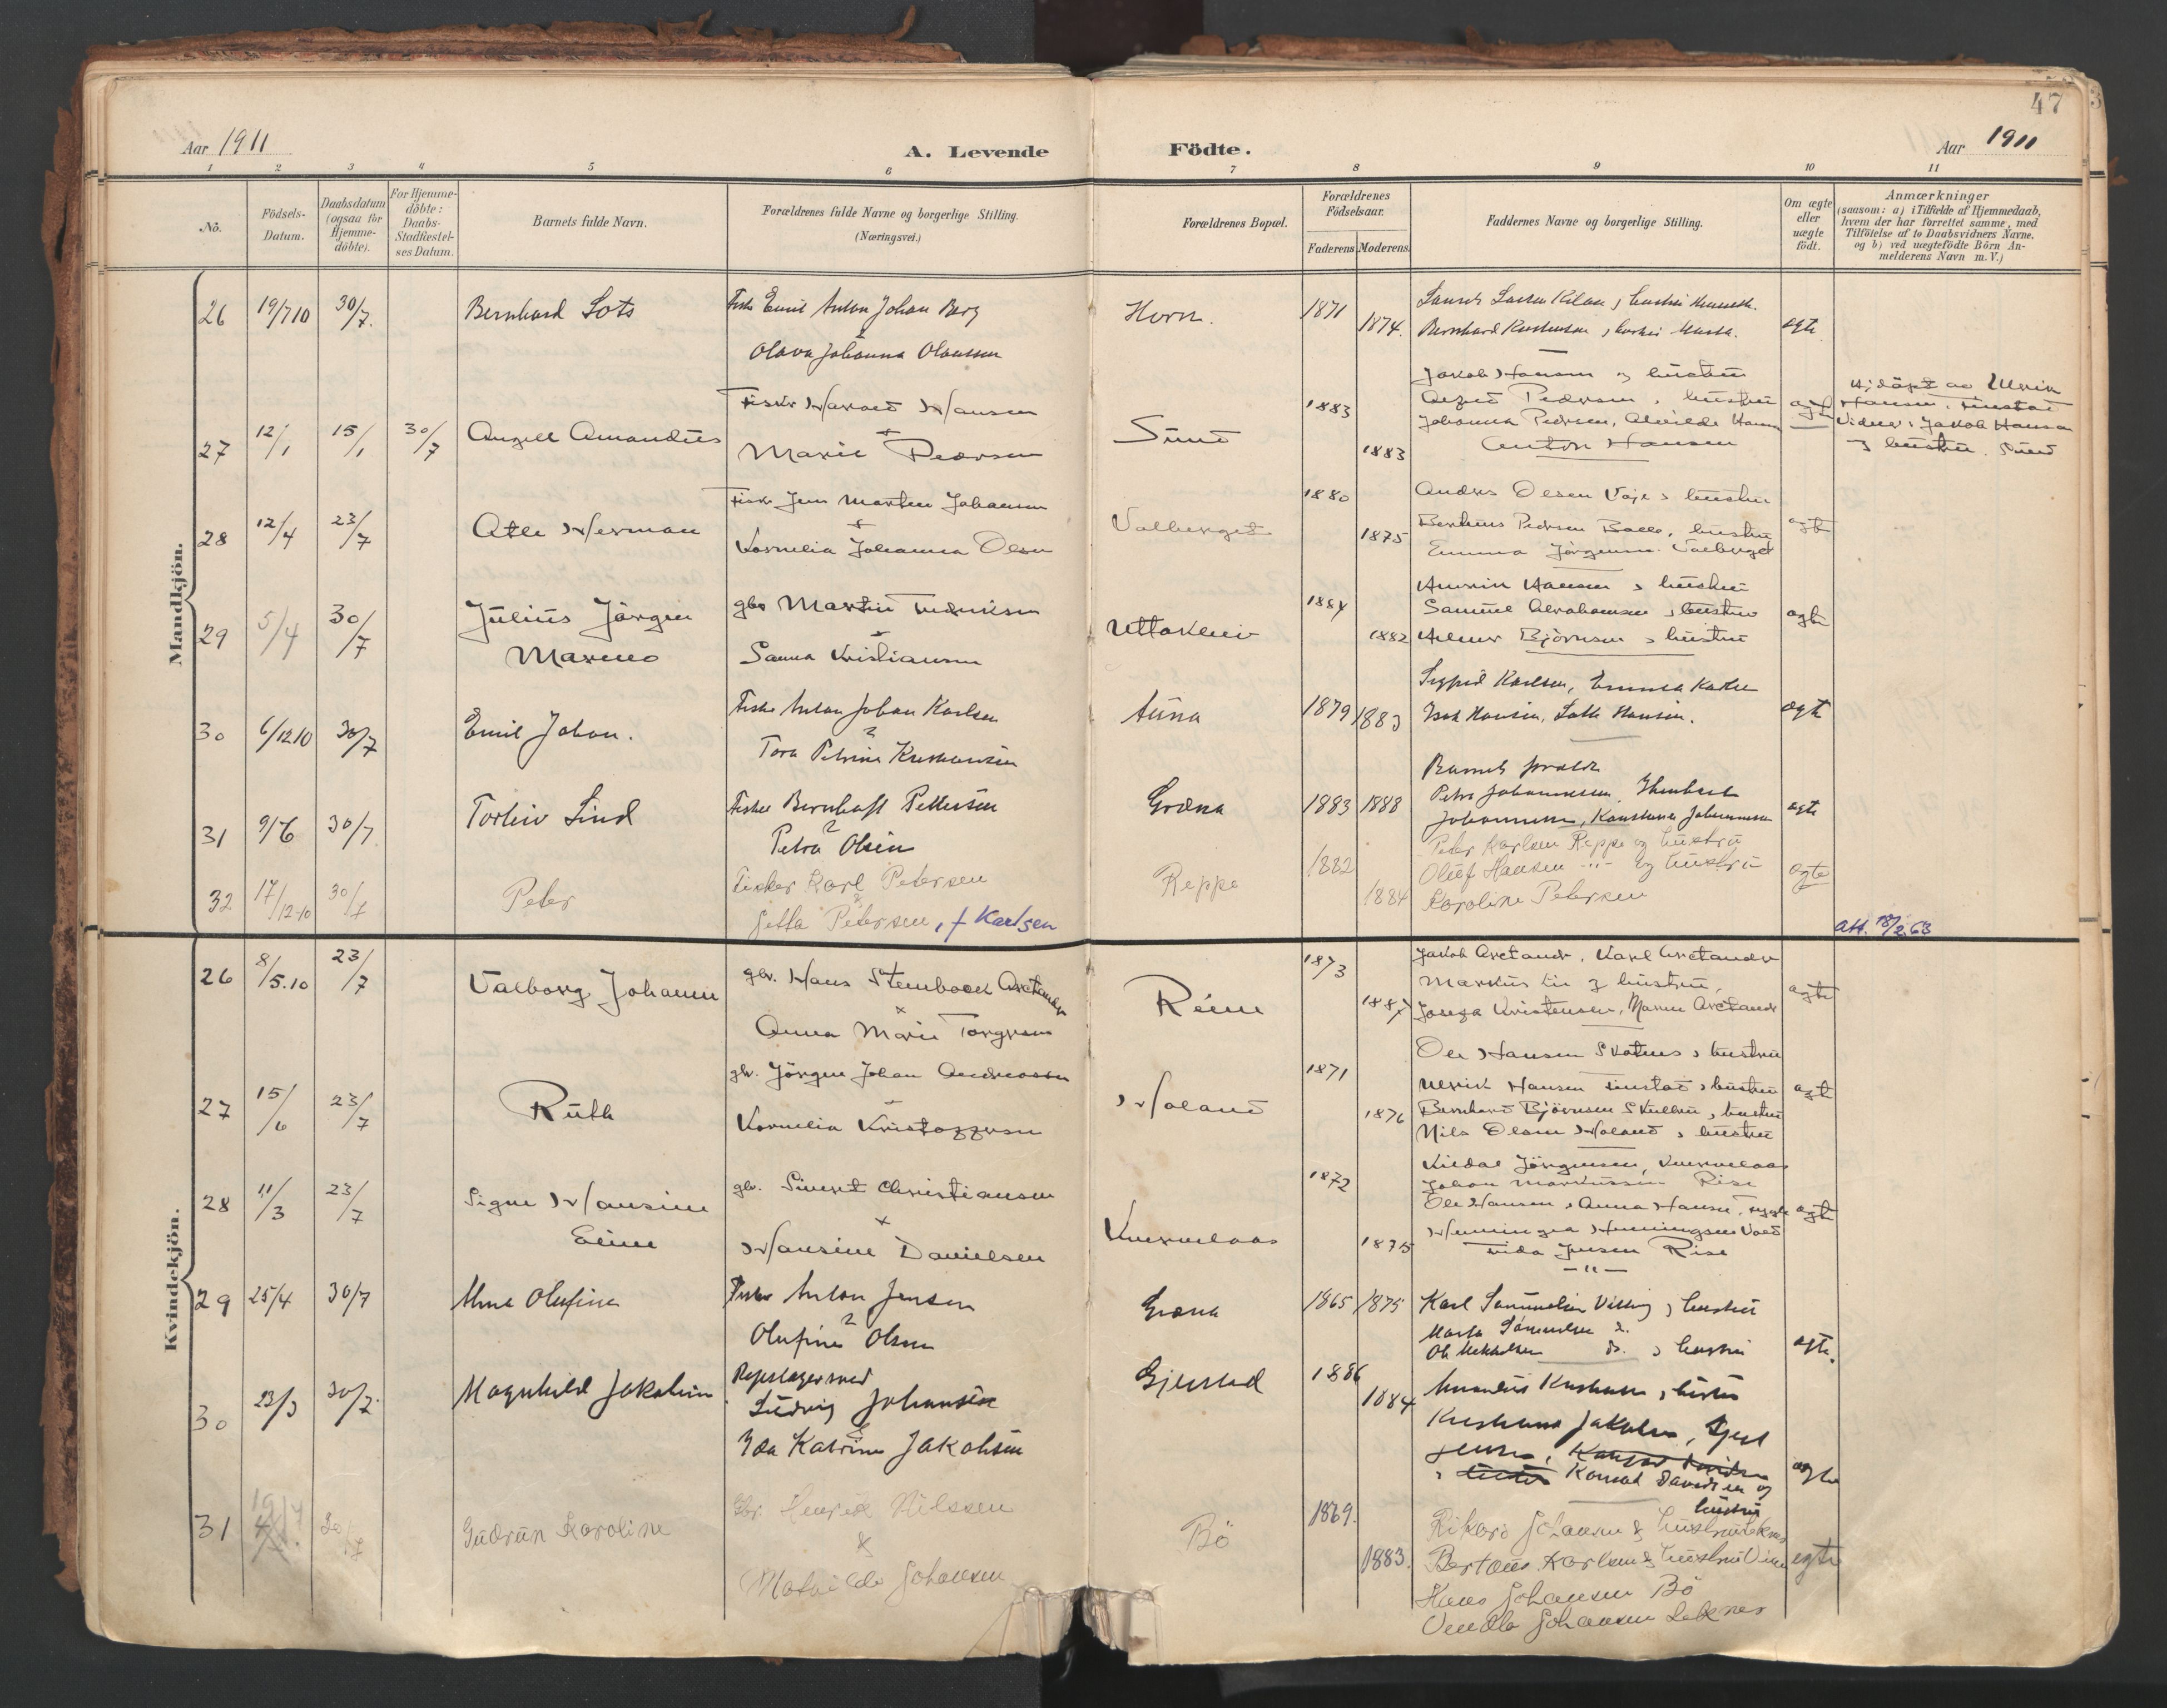 47
Aar 1911
A. Levende Födte.
Aar 1911
1 2 3 4 5 6 7 8 9 10 11
No.
Födsels-Datum.
Daabsdatum (ogsaa for Hjemme-döbte).
For Hjemme-döbte: Daabs-Stadfæstel-ses Datum.
Barnets fulde Navn.
Forældrenes fulde Navne og borgerlige Stilling.
(Næringsvei.)
Forældrenes Bopæl.
Forældrenes Födselsaar.
Faderens Moderens
Faddernes Navne og borgerlige Stilling.
Om ægte eller uægte födt.
Anmærkninger
(saasom: a) i Tilfælde af Hjemmedaab,
hvem der har forrettet samme, med
Tilföielse af to Daabsvidners Navne.
og b) ved uægtefödte Börn An-
melderens Navn m. V.)
Mandkjön.
26 19/7 10 30/7. Bernhard Lots
Fisk Emil Anton Johan Berg
Olava Johanna Olaussen
Horn. 1871 1874.
Bernhard Kristensen, hustru
ægte
27 12/1 15/1 30/7 Angell Amandus
Fisker Harald Hansen
+
Marie Pedersen
Sund 1883 1883
Jakob Hansen og hustru
Alfred Pedersen, hustru
Johanna Pedersen, Alvilde Hansen
Anton Hansen
ægte
Hj.døpt av Ulrik
Hansen, Finstad
Vidner: Jakob Hansen
og hustru. Sund
28 12/4 23/7 Atle Herman
Fisk. Jens Marten Johansen
+
Kornelia Johanna Olsen
Valberget 1880 1875
Andres Olsen Voje, hustru
Pedersen Balle, hustru
Emma Jörgensen. Valberget
ægte
29 5/4 30/7 Julius Jörgen
Mareno
gbr Martin Fredriksen
+
Sanna Kristiansen
Uttakleiv 1884 1882
Henrik Hansen, hustru
Samuel Abrahamsen, hustru
Hilmer Björnsen, hustru
ægte
30 6/12 10 30/7 Emil Johan.
Fisker Anton Johan Karlsen
Tora Petrine Kristiansen
Auna 1879 1883
Sigfrid Karlsen, Emma Karlsen
Isak Hansen, Lotte Hansen.
ægte
31 9/6 30/7 Torleiv Lind
Fisker Bernhoft Pettersen
Petra Olsen
Grædna 1883 1888
Barnets forældre
Petra Johannessen,
Johannessen, Konstanse Johannessen
ægte
32 17/12-10 30/7 Peter
Fisker Karl Petersen
&
Jetta Petersen, f Karlsen
Reppe 1882 1884
Peter Karlsen Reppe og hustru
Oluf Hansen -"- og hustru
Karoline Petersen
ægte
Att. 18/2.63
Kvindekjön.
26 8/5.10 23/7 Valborg Johanne
gbr. Hans Stenbock Arctander
+
Anna Marie Torgersen
Reine 1873 1887
Jakob Arctander, Karl Arctander
Markus Lie og hustru,
Josefa Kristensen, Maren Arctander
ægte
27 15/6 23/7 Ruth
gbr. Jörgen Johan Andreassen
+
Kornelia Kristoffersen
Holand 1871 1876
Ole Hansen Skotnes, hustru
Ulrik Hansen Finstad, hustru
Bernhard Björnsen Skullbru, hustru
Nils Olsen Holand, hustru
ægte
28 11/3 23/7 Signe Hansine
Eline
gbr. Sivert Christiansen
+
Hansine Danielsen
Kvernelaas 1872 1875
Vidar Jörgensen, Kvernelaas
Johan Markussen Rise
Ole Hansen, Anna Hansen,
Henninga Henningsen Vold
Frida Jensen Rise
-"-
ægte
29 25/4 30/7 Alma Olufina
Fisker Anton Jensen
Olufine Olsen
Grædna 1865 1875
Karl Samuelsen, hustru
Marta Samuelsen d.
Ole do. , hustru
ægte.
30 23/3 30/7. Magnhild Jakobine
Repslagersvend
Ludvig Johansen
&
Ida Katrine Jakobsen
Gjerstad 1886 1884
Amandus Kristiansen, hustru
Kristiane Jakobsen,
Jensen,
Konrad Davidsen og
hustru
ægte
31 19/4 30/7 Gudrun Karoline
Gbr. Henrik Nilssen
&
Mathilde Johansen
Bö 1869. 1883.
Rikard Johansen & hustru Leknes
Bertæus Karlsen & hustru
Hans Johansen Bö
Vendla Johansen Leknes
egte